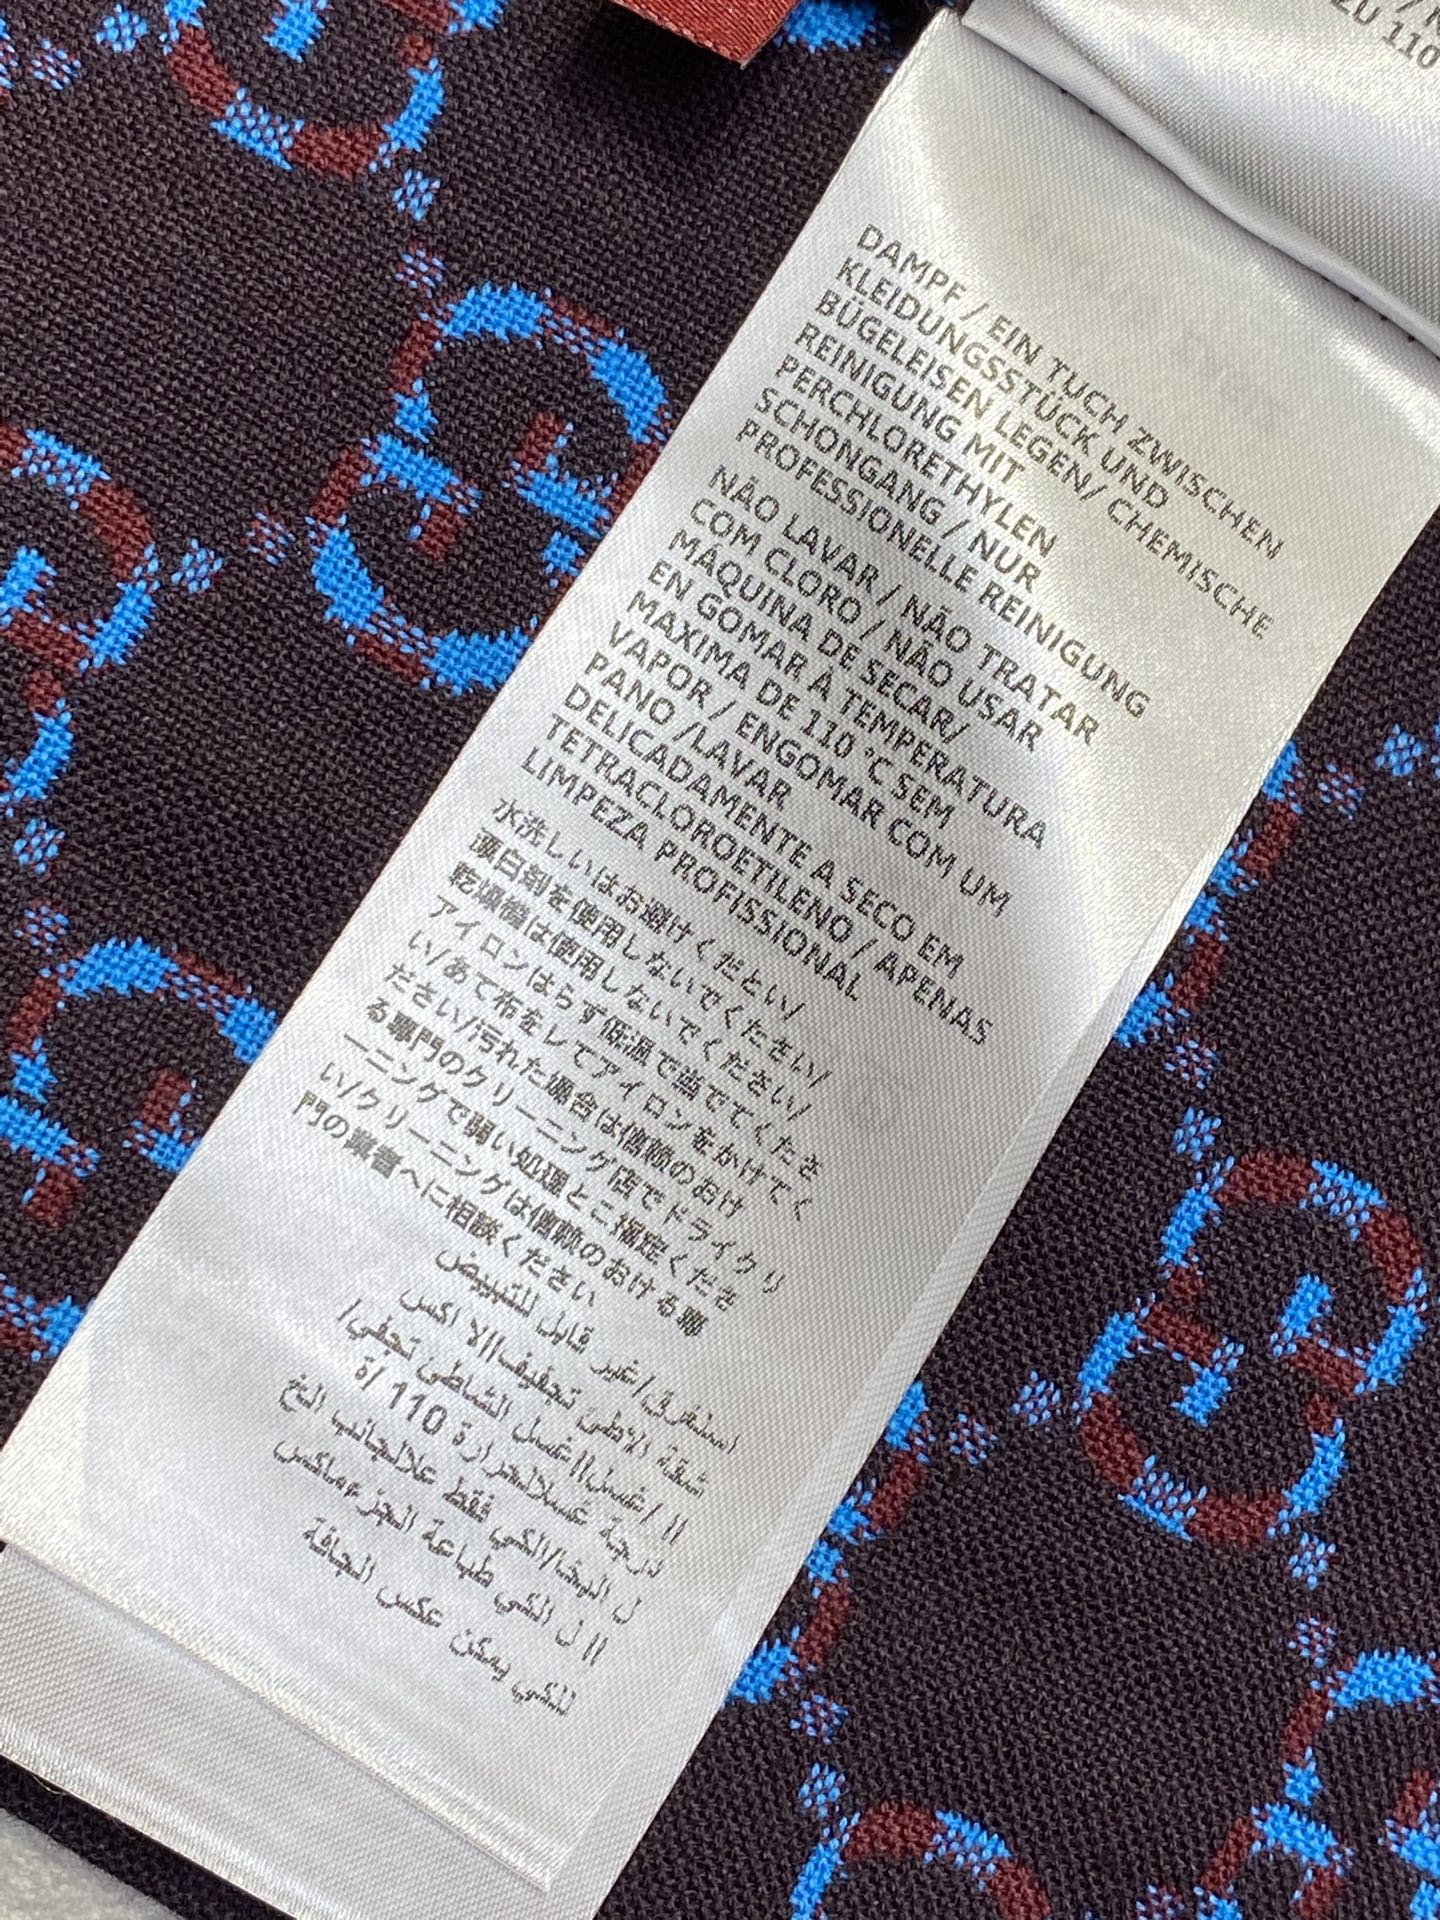 ZU 110
DAMPF / EIN TUCH ZWISCHEN
KLEIDUNGSSTÜCK UND
BÜGELEISEN LEGEN/ CHEMISCHE
REINIGUNG MIT
PERCHLORETHYLEN
SCHONGANG / NUR
PROFESSIONELLE REINIGUNG
NÃO LAVAR / NÃO TRATAR
COM CLORO / NÃO USAR
MÁQUINA DE SECAR/
EN GOMAR À TEMPERATURA
MAXIMA DE 110 °C SEM
VAPOR / ENGOMAR COM UM
PANO /LAVAR
DELICADAMENTE A SECO EM
TETRACLOROETILENO / APENAS
LIMPEZA PROFISSIONAL
水洗しいはお避けくだとい/
漂白剤を使用しないでください/
乾燥機は使用しないでください/
アイロンはらず低温で当でてくださ
い/あて布をしてアイロンをかけてく
ださい/汚れた場合は信赖のおけ
る專門のクリーニング店でドライクリ
ーニングで弱い処理とこ指定くださ
い/クリーニングは信赖のおける專
門の業者へに相談ください
قابل للتبيض
استغرق/غير تجفيف||الا اكس
شقة الاطئ الشاطئ تجفي/
|| /غسل||غسل 110 /ة
درجة غسلالحرارة علالجانب الخ
ل البخا/الكي فقط الجزءماكس
|| ل الكي طباعة الجافة
للكي يمكن عكس